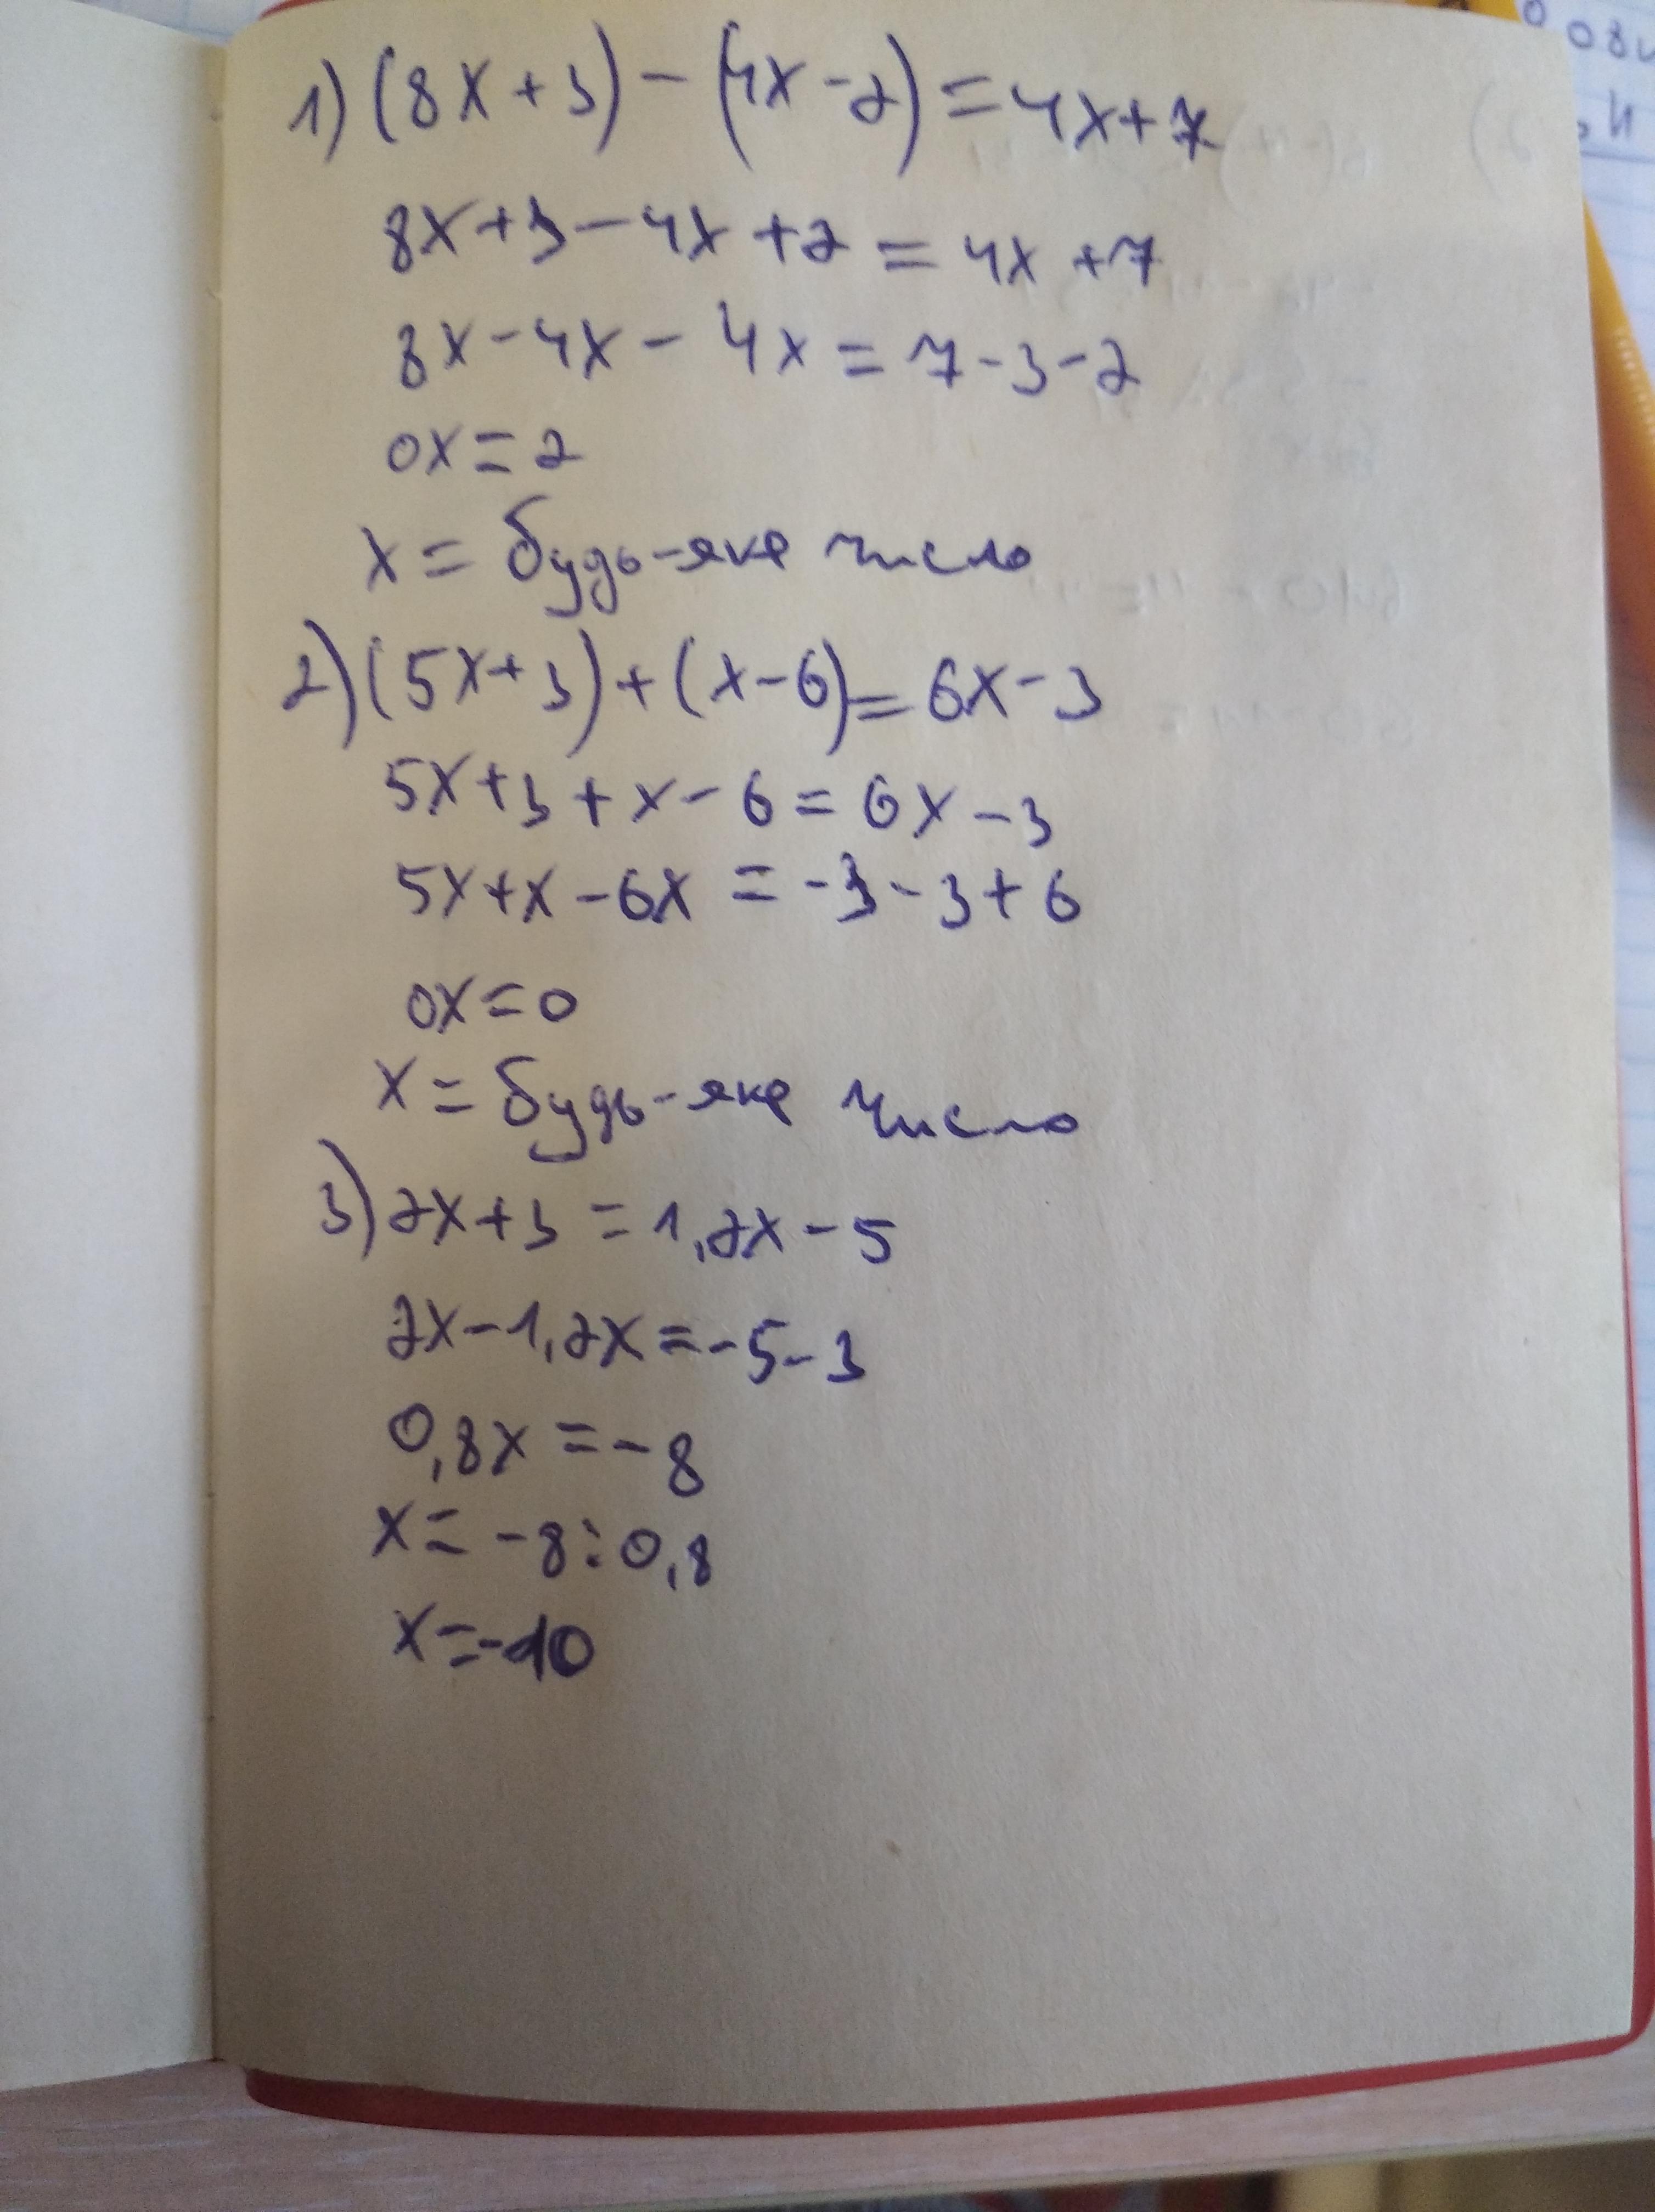 1) (8x+3) - (4x-2) = 4x+7
8x+3-4x+2 = 4x+7
8x-4x-4x = 7-3-2
0x = 2
x = будь-яке число
2) (5x+3)+(x-6) = 6x-3
5x+3+x-6 = 6x-3
5x+x-6x = -3-3+6
0x = 0
x = будь-яке число
3) 2x+3 = 1,2x-5
2x-1,2x = -5-3
0,8x = -8
x = -8:0,8
x = -10